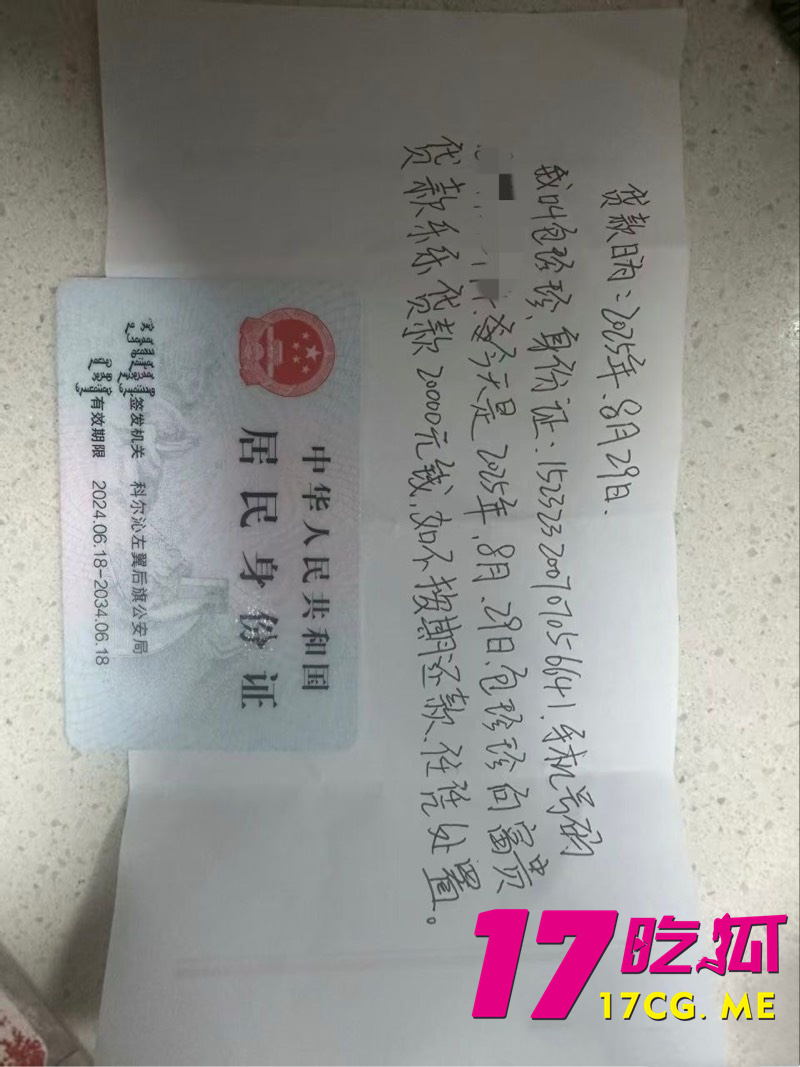 贷款日为：2025年、8月29日.
我叫[omitted]、身份证：[omitted]、手机号码
今天是2025年、8月、29日、[omitted]向富贵
贷款乐乐贷款20000元钱，如不按期还款、任凭处置。
中华人民共和国
居民身份证
签发机关 科尔沁左翼后旗公安局
有效期限 2024.06.18-2034.06.18
17吃狐
17CG.ME